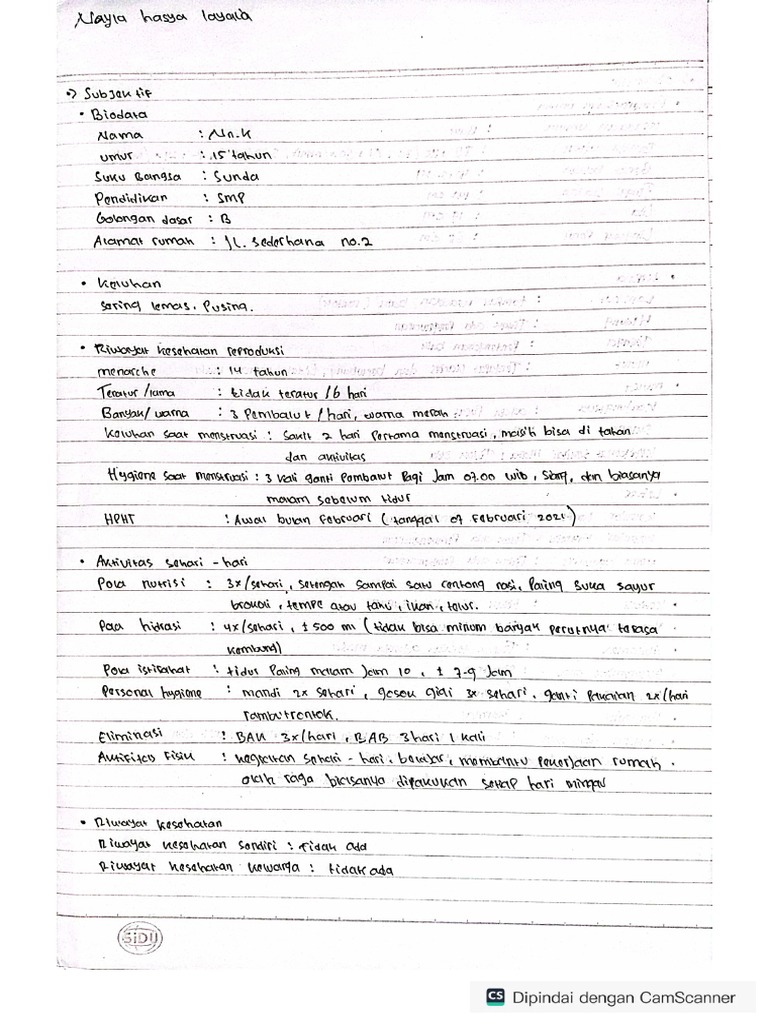 Nayla hasya layala
-> Subjektif
• Biodata
Nama : Nn.K
umur : 15 tahun
Suku Bangsa : Sunda
Pendidikan : SMP
Golongan dasar : B
Alamat rumah : JL. Sederhana no.2
• Keluhan
sering lemas, Pusing.
• Riwayat kesehatan reproduksi
menarche : 14 tahun
Teratur/lama : tidak teratur /6 hari
Banyak/warna : 3 Pembalut /hari, warna merah
Keluhan saat menstruasi : Sakit 2 hari Pertama menstruasi, masih bisa di tahan
dan aktivitas
Hygiene saat menstruasi : 3 kali ganti Pembalut Pagi Jam 07.00 wib, Siang, dan biasanya
malam sebelum tidur
HPHT : Awal bulan Februari (tanggal 07 Februari 2021)
• Aktivitas sehari - hari
Pola nutrisi : 3x/sehari, setengah sampai satu centong nasi, Paling suka sayur
brokoli, tempe atau tahu, ikan, telur.
Pola hidrasi : 4x/sehari, ± 500 ml (tidak bisa minum banyak perutnya terasa
kembung)
Pola istirahat : tidur Paling malam Jam 10, ± 7-9 Jam
Personal hygiene : mandi 2x sehari, gosok gigi 3x sehari, ganti Pakaian 2x/hari
rambut rontok.
Eliminasi : BAK 3x/hari, BAB 3 hari 1 kali
Aktifitas Fisik : kegiatan sehari - hari, belajar, membantu pekerjaan rumah.
olah raga biasanya dilakukan setiap hari minggu
• Riwayat kesehatan
Riwayat kesehatan sendiri : Tidak ada
Riwayat kesehatan keluarga : tidak ada
SiDU
CS Dipindai dengan CamScanner